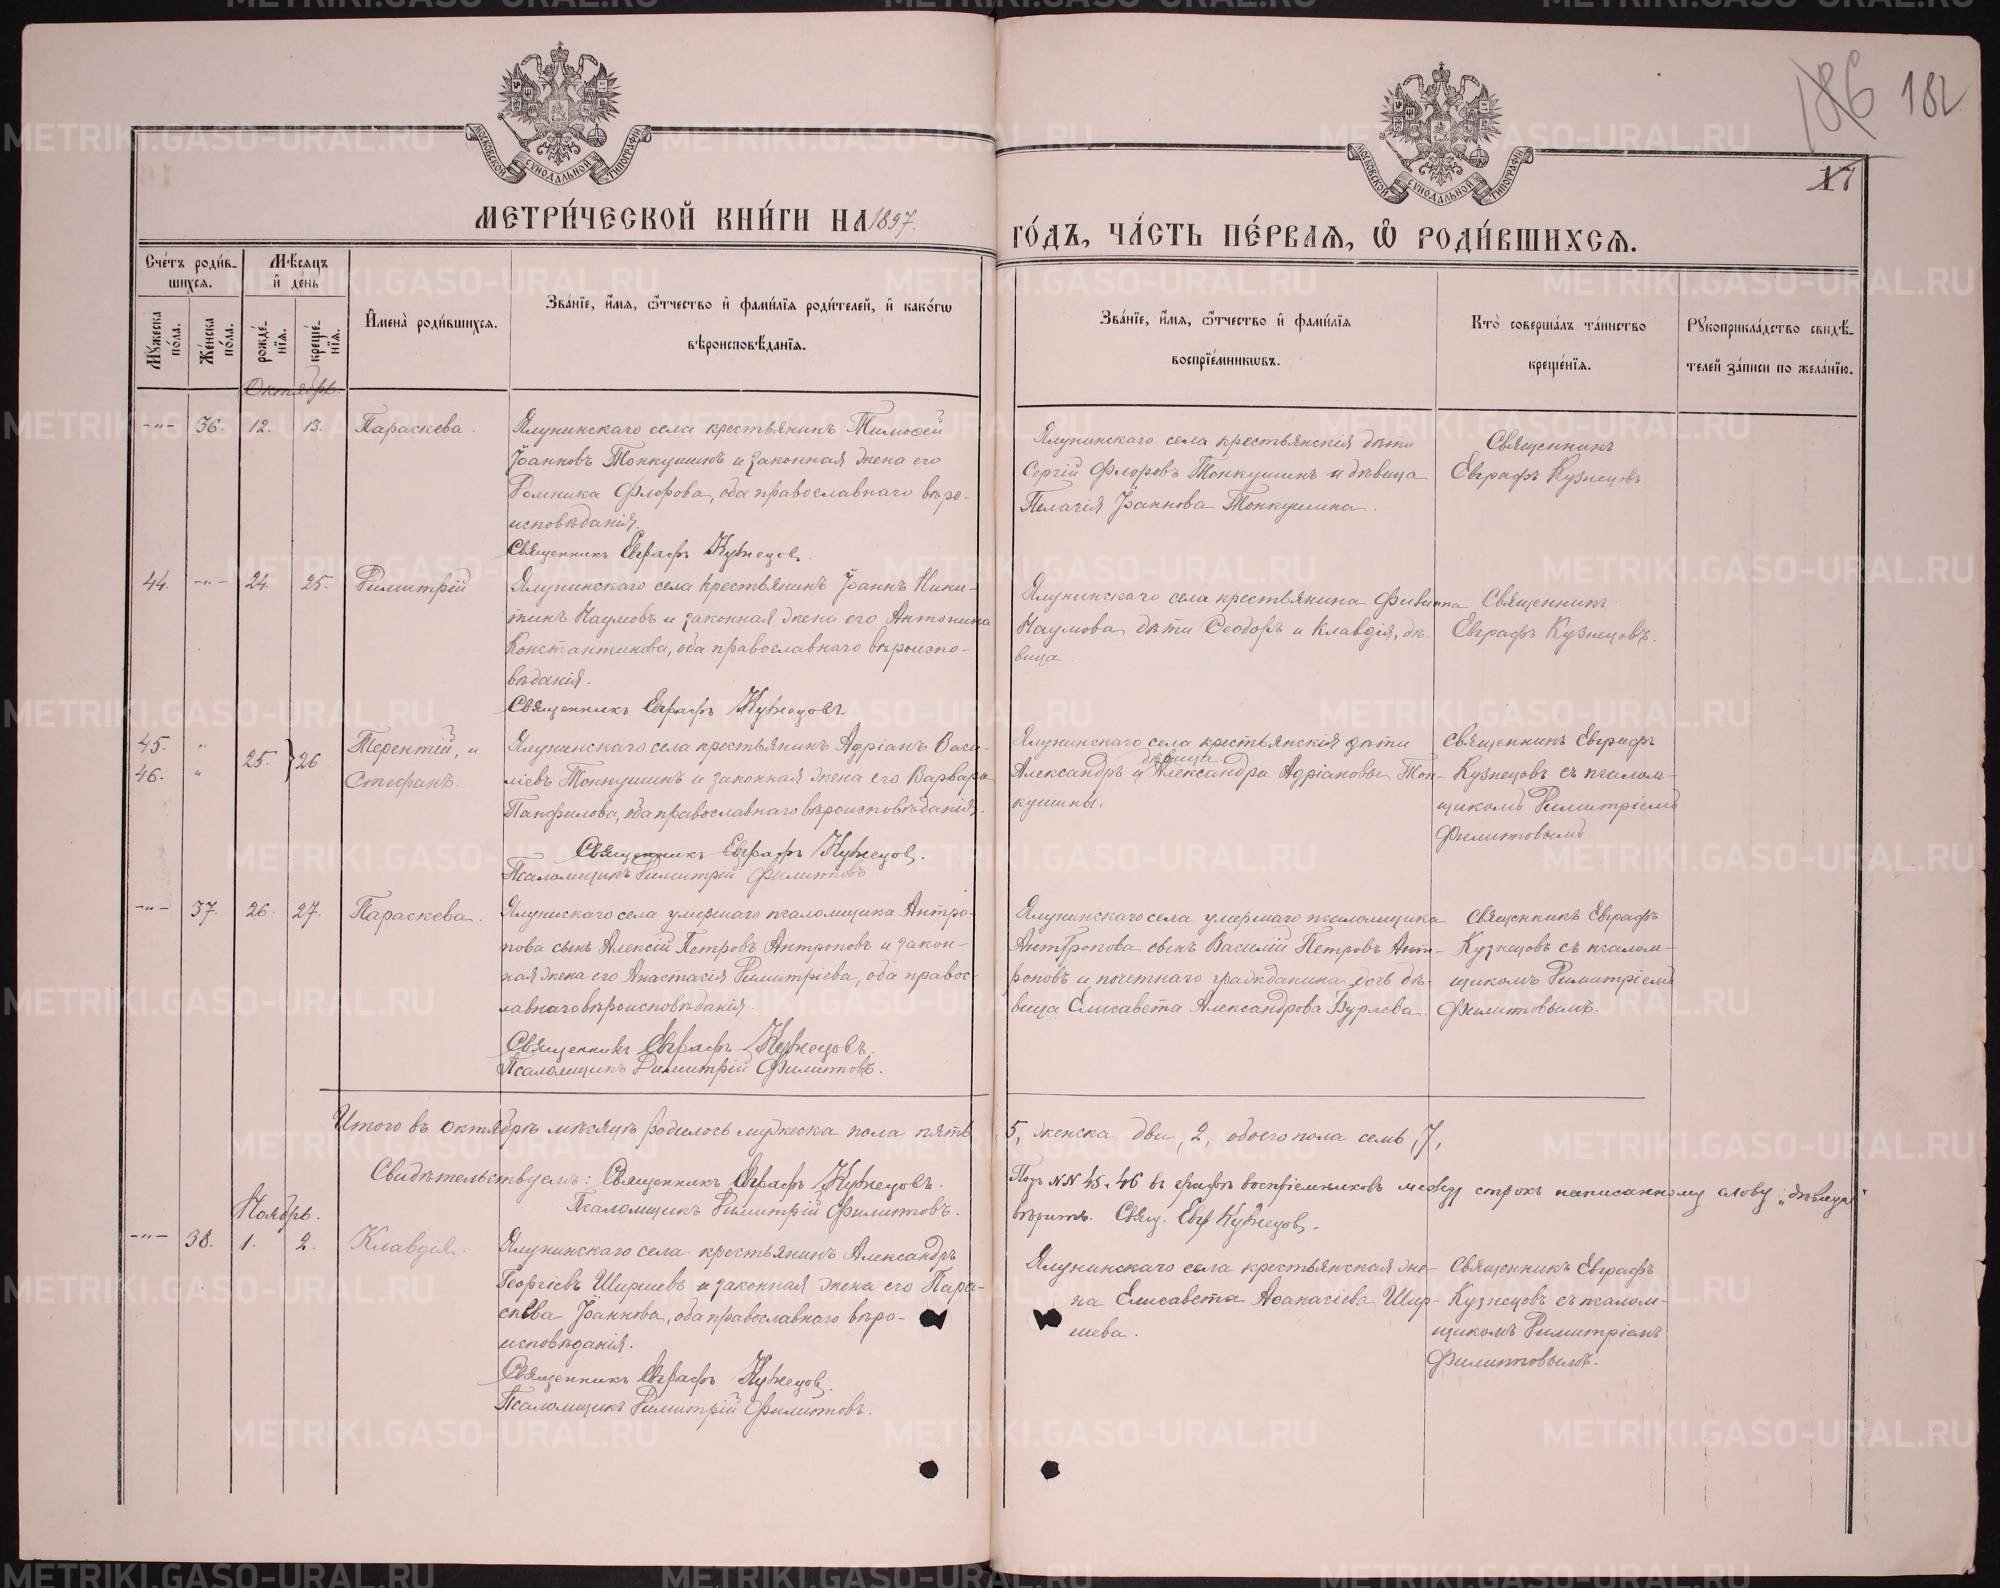 186 182
17
МОСКОВСКОЙ СУНОДАЛЬНОЙ ТИПОГРАФІИ
МОСКОВСКОЙ СУНОДАЛЬНОЙ ТИПОГРАФІИ
МЕТРИ́ЧЕСКОЙ КНИ́ГИ НА 1897.
ГО́ДЪ, ЧА́СТЬ ПЕ́РВАЯ, Ѡ РОДИ́ВШИХСЯ.
Сче́тъ роди́в-
шихся.
Мꙋжеска по́ла.
Же́нска по́ла.
Мѣ́сяцъ
и де́нь
рожде́нїя.
креще́нїя.
Имена̀ роди́вшихся.
Зва́нїе, и́мя, ѻ҆́тчество и фами́лїя роди́телей, и како́гѡ
вѣроисповѣ́данїя.
Зва́нїе, и́мя, ѻ҆́тчество и фами́лїя
воспрїе́мникѡвъ.
Кто̀ соверша́лъ та́инство
креще́нїя.
Рꙋкоприкла́дство свидѣ́-
телей за́писи по жела́нїю.
Октябрь.
-"- 36. 12. 13. Параскева.
Ялунинскаго села крестьянинъ Тимоѳей
Іоанновъ Тонкушинъ и законная жена его
Домника Флорова, оба православнаго вѣро-
исповѣданія.
Священникъ Евграфъ Кузнецов.
Ялунинскаго села крестьянскія дѣти
Сергій Флоровъ Тонкушинъ и дѣвица
Пелагія Іоаннова Тонкушина.
Священникъ
Евграфъ Кузнецовъ
44. -"- 24. 25. Димитрій
Ялунинскаго села крестьянинъ Іоаннъ Ники-
тинъ Наумовъ и законная жена его Антонина
Константинова, оба православнаго вѣроиспо-
вѣданія.
Священникъ Евграфъ Кузнецовъ.
Ялунинскаго села крестьянина Филиппа
Наумова дѣти Ѳеодоръ и Клавдія, дѣ-
вица.
Священникъ
Евграфъ Кузнецовъ.
45. "
46. "
25. } 26
Терентій, и
Стефанъ.
Ялунинскаго села крестьянинъ Адріанъ Васи-
ліевъ Тонкушинъ и законная жена его Варвара
Панфилова, оба православнаго вѣроисповѣданія.
Священникъ Евграфъ Кузнецов.
Псаломщикъ Димитрій Филитовъ
Ялунинскаго села крестьянскія дѣти
дѣвица
Александръ и Александра Адріановы Тон-
кушины.
Священникъ Евграфъ
Кузнецовъ съ псалом-
щикомъ Димитріемъ
Филитовымъ
-"- 37. 26. 27. Параскева.
Ялунискаго села умершаго псаломщика Антро-
пова сынъ Алексій Петровъ Антроповъ и закон-
ная жена его Анастасія Димитріева, оба правос-
лавнаго вѣроисповѣданія.
Священникъ Евграфъ Кузнецовъ.
Псаломщикъ Димитрій Филитовъ.
Ялунинскаго села умершаго псаломщика
Антропова сынъ Василій Петровъ Ант-
роповъ и почетнаго гражданина дочь дѣ-
вица Елисавета Александрова Бурлева.
Священникъ Евграфъ
Кузнецовъ съ псалом-
щикомъ Димитріемъ
Филитовымъ.
Итого въ октябрѣ мѣсяцѣ родилось мужеска пола пять
5, женска два, 2, обоего пола семь, 7,
Свидѣтельствуемъ: Священникъ Евграфъ Кузнецовъ.
Псаломщикъ Димитрій Филитовъ.
Подъ NN 45, 46 въ графѣ воспріемниковъ между строкъ написанному слову "дѣвица"
вѣрить. Свящ. Евгр Кузнецов.
Ноябрь.
-"- 38. 1. 2. Клавдія.
Ялунинскаго села крестьянинъ Александръ
Георгіевъ Ширшевъ и законная жена его Пара-
скева Іоаннова, оба православнаго вѣро-
исповѣданія.
Священникъ Евграфъ Кузнецов.
Псаломщикъ Димитрій Филитовъ.
Ялунинскаго села крестьянская же-
на Елисавета Аѳанасіева Шир-
шева.
Священникъ Евграфъ
Кузнецовъ съ псалом-
щикомъ Димитріемъ
Филитовымъ.
METRIKI.GASO-URAL.RU